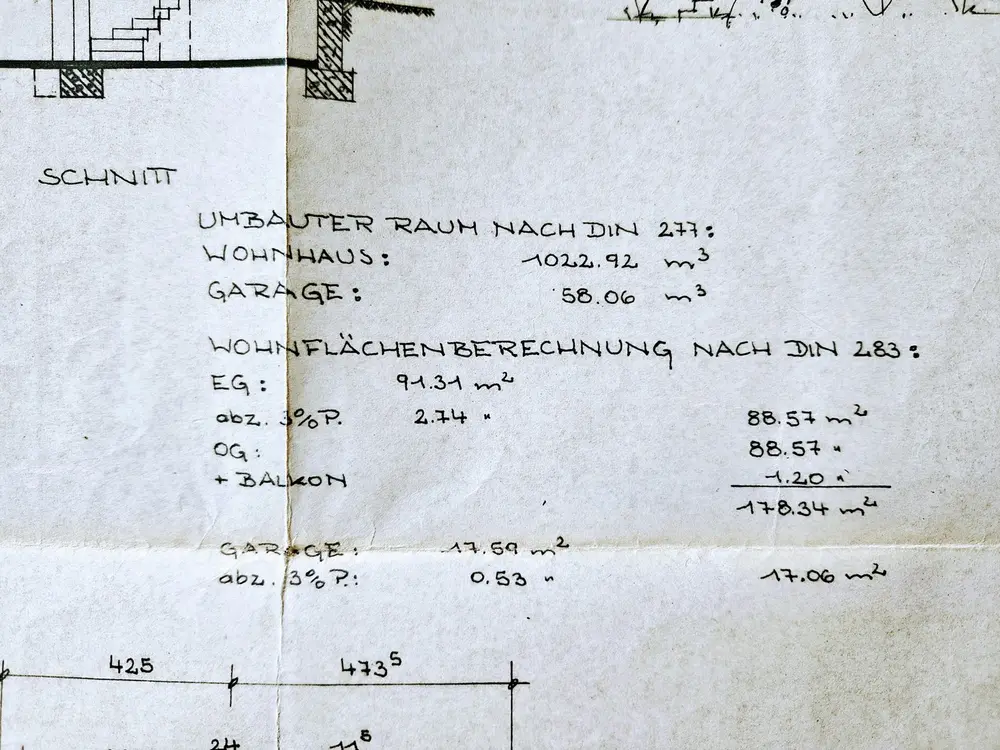 SCHNITT
UMBAUTER RAUM NACH DIN 277:
WOHNHAUS: 1022.92 m³
GARAGE: 58.06 m³
WOHNFLÄCHENBERECHNUNG NACH DIN 283:
EG: 91.31 m²
abz. 3% P. 2.74 " 88.57 m²
OG: 88.57 "
+ BALKON 1.20 "
178.34 m²
GARAGE: 17.59 m²
abz. 3% P.: 0.53 " 17.06 m²
425 473⁵
24 11⁵